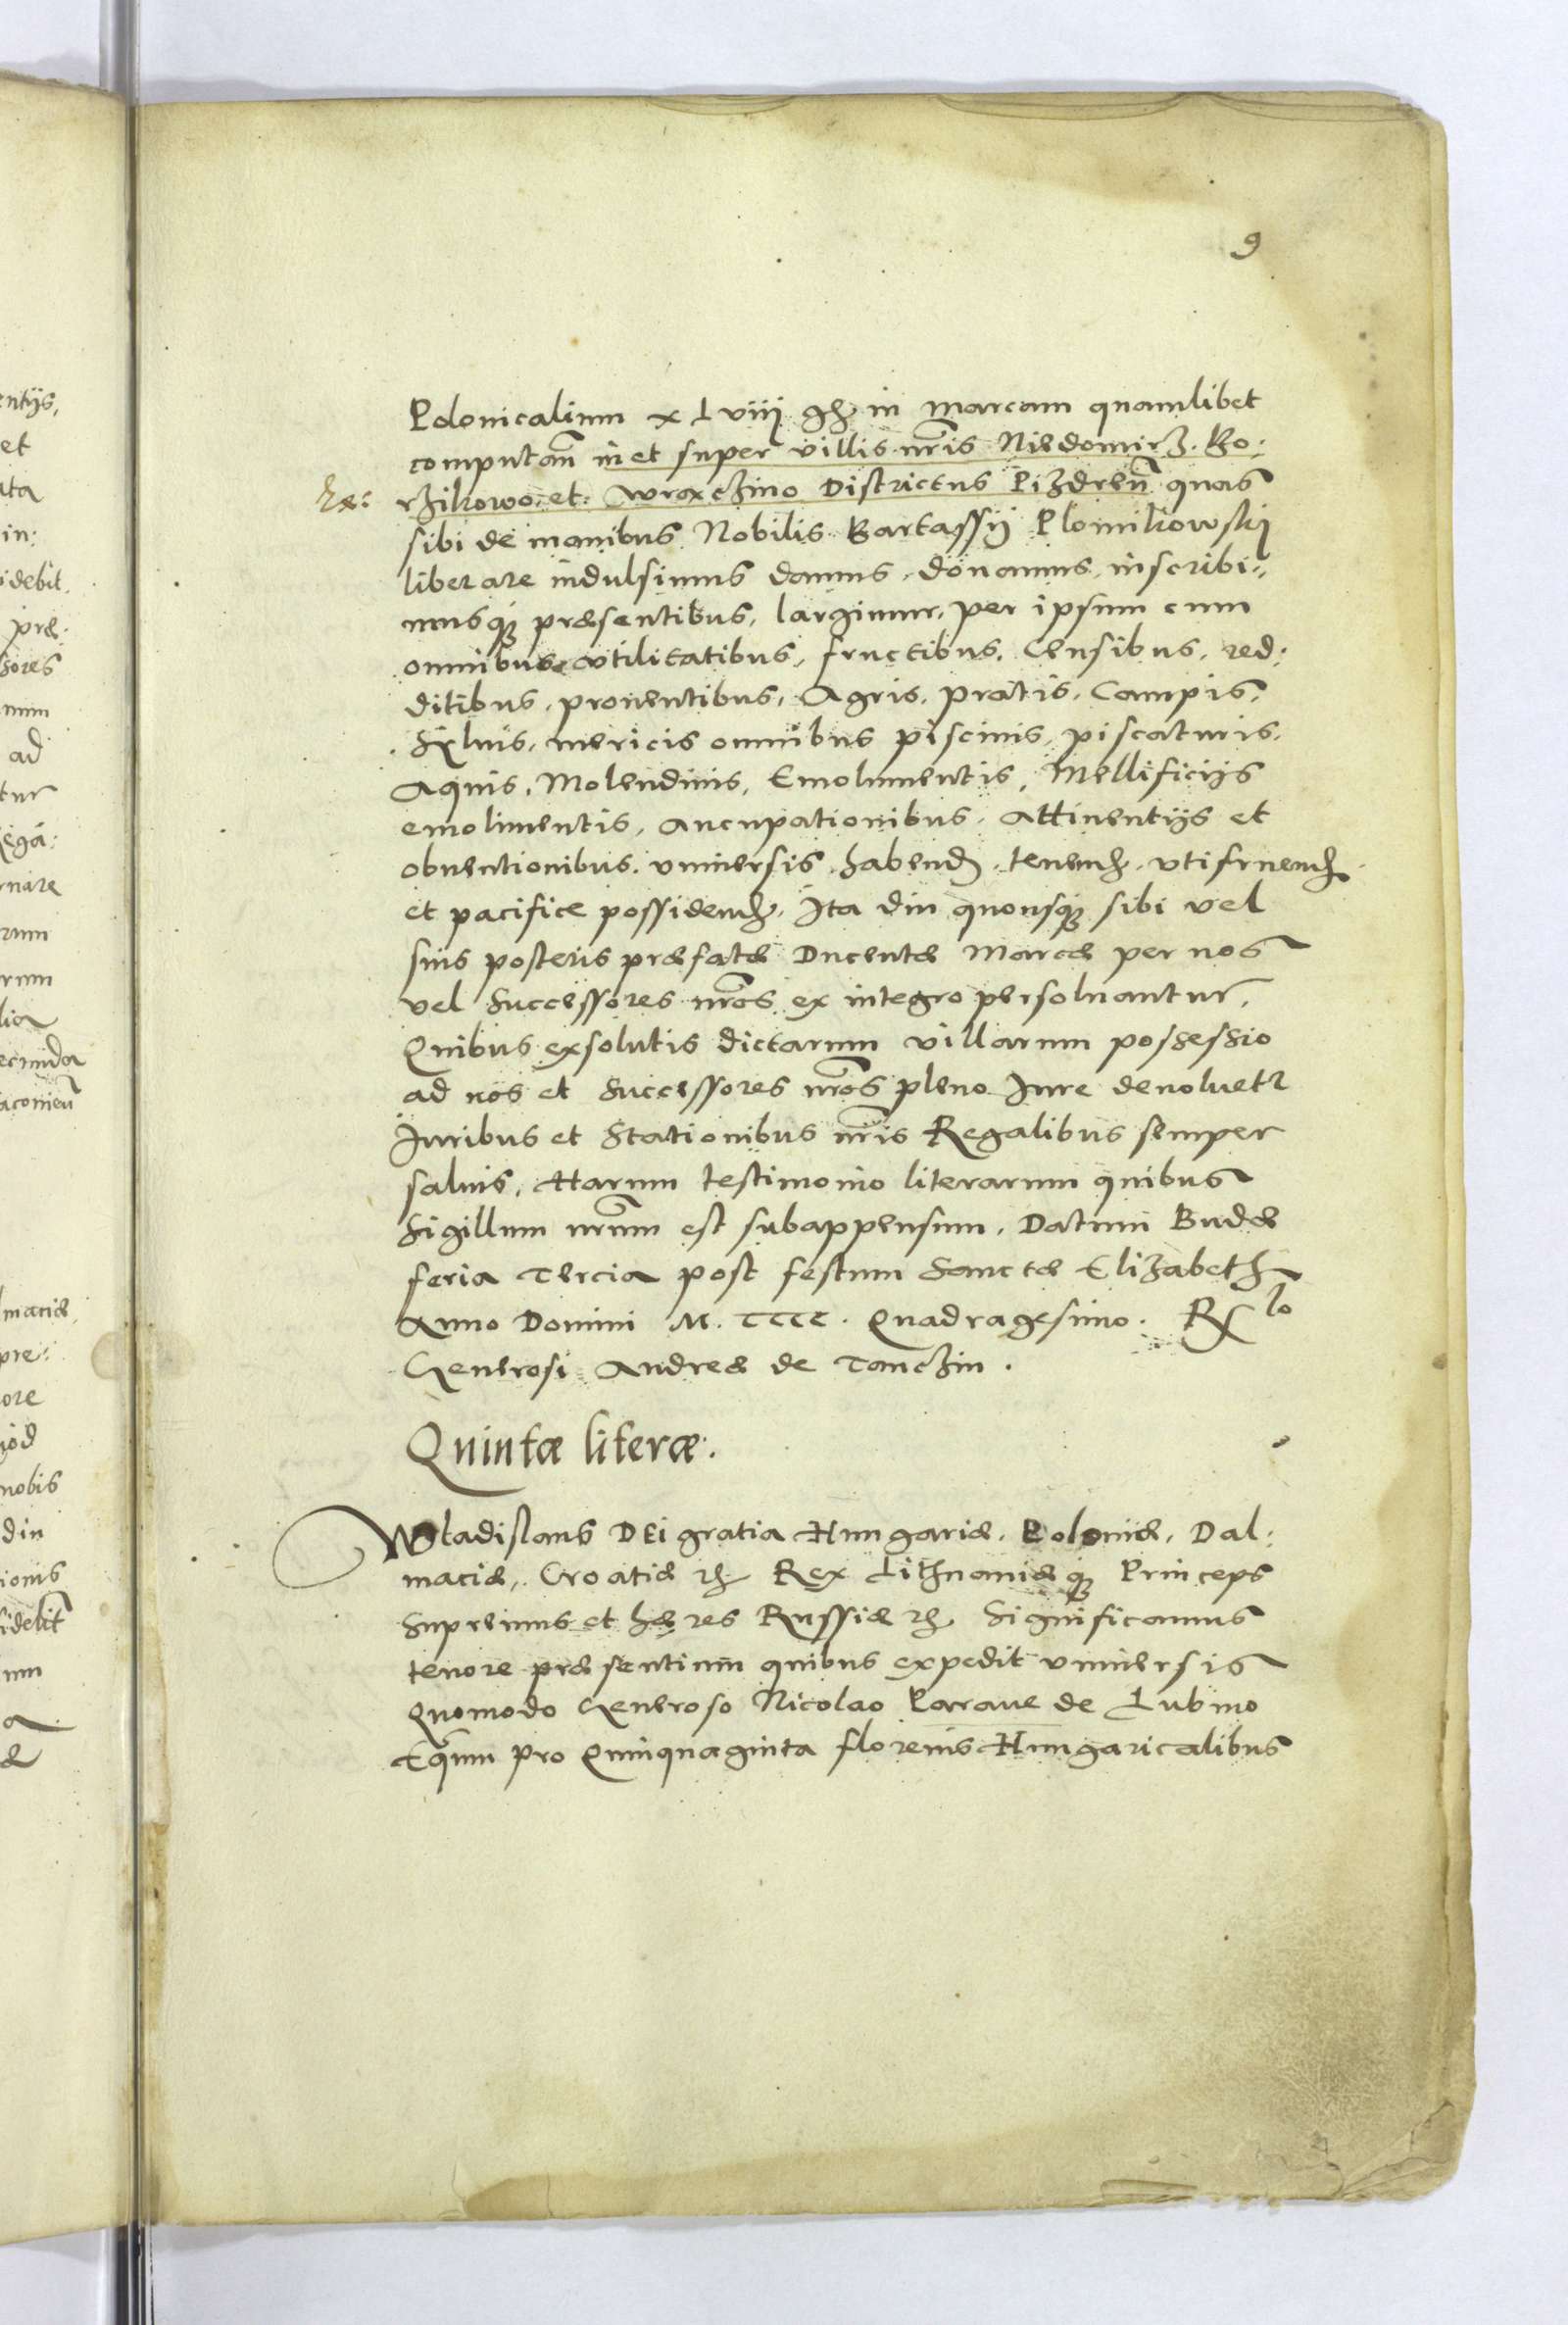 9
Polonicalium xLviij gꝝ in marcam quamlibet
computań in et super villis nr̃is Niedomirz. Bo:
rzikowo. et. Wraxczino Districtus Pizdreñ quas
sibi de manibus Nobilis Bartassij Plomikowskj
liberare indulsimus damus, donamus, inscribi„
musq3 præsentibus, largimur, per ipsum cum
omnibus vtilitatibus, fructibus, Censibus, red:
ditibus, prouentibus, Agris, pratis, Campis,
Syluis, mericis omnibus piscinis, piscaturis,
Aquis, Molendinis, Emolumentis, Mellificijs
emolimentis, aucupationibus, attinentijs et
obuentionibus vniuersis habend. tenend. vtifruend.
et pacifice possidend. Ita diu quousq3 sibi vel
suis posteris præfatæ Ducentæ Marcæ per nos
vel Successores nr̃os ex integro persoluantur,
Quibus exsolutis dictarum villarum possessio
ad nos et Successores nr̃os pleno Iure deuoluetr
Iuribus et Stationibus nr̃is Regalibus semper
saluis, Harum testimonio literarum quibus
Sigillum nr̃um est subappensum. Datum Budæ
feria Tercia post festum Sanctæ Elizabeth
Anno Domini M. CCCC. Quadragesimo. Rlo
Generosi Andreæ de Tanczin.
Quintæ literæ:
Wladislaus DEi gratia Hungariæ, Poloniæ, Dal:
maciæ, Croatiæ ꝛc Rex Lithuaniæq3 Princeps
Supremus et hæres Russiæ ꝛc. Significamus
tenore præsentium quibus expedit vniuersis
Quomodo Generoso Nicolao Paraue de Lubino
Equum pro Quinquaginta florenis Hungaricalibus